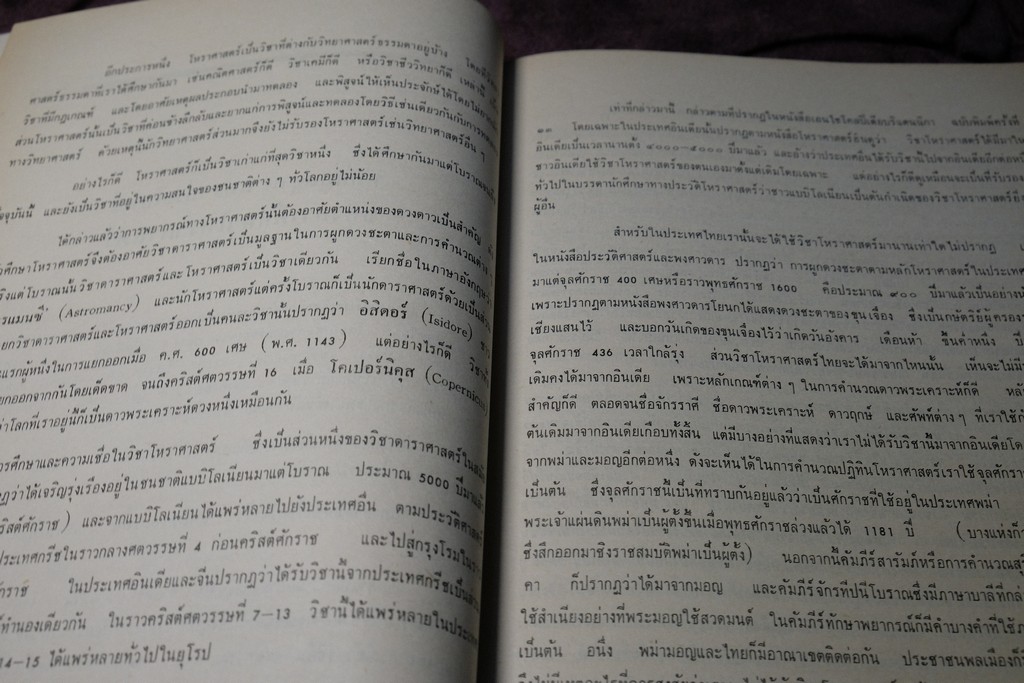 อีกประการหนึ่ง โหราศาสตร์เป็นวิชาที่ต่างกับวิทยาศาสตร์ธรรมดาอยู่บ้าง
ศาสตร์ธรรมดาที่เราใช้ศึกษากันมา เช่นคณิตศาสตร์ก็ดี วิชาเคมีก็ดี หรือวิชาชีววิทยาก็ดี เหล่านี้
วิชาที่มีกฎเกณฑ์ และโดยอาศัยเหตุผลประกอบนำมาทดลอง และพิสูจน์ให้เห็นประจักษ์ได้โดยไม่
ส่วนโหราศาสตร์นั้นเป็นวิชาที่ค่อนข้างลึกลับและยากแก่การพิสูจน์และทดลองโดยวิธีเช่นเดียวกันกับการ
ทางวิทยาศาสตร์ ด้วยเหตุนี้นักวิทยาศาสตร์ส่วนมากจึงยังไม่รับรองโหราศาสตร์เช่นวิทยาศาสตร์อื่น ๆ
อย่างไรก็ดี โหราศาสตร์ก็เป็นวิชาเก่าแก่ที่สุดวิชาหนึ่ง ซึ่งได้ศึกษากันมาแต่โบราณ
และยังเป็นวิชาที่อยู่ในความสนใจของชนชาติต่าง ๆ ทั่วโลกอยู่ไม่น้อย
ได้กล่าวแล้วว่าการพยากรณ์ทางโหราศาสตร์นั้นต้องอาศัยตำแหน่งของดวงดาวเป็นสำคัญ
ศึกษาโหราศาสตร์จึงต้องอาศัยวิชาดาราศาสตร์เป็นมูลฐานในการผูกดวงชะตาและการคำนวณต่าง ๆ
แต่โบราณนั้นวิชาดาราศาสตร์และโหราศาสตร์เป็นวิชาเดียวกัน เรียกชื่อในภาษาอังกฤษว่า
(Astromancy) และนักโหราศาสตร์แต่ครั้งโบราณก็เป็นนักดาราศาสตร์ด้วยเป็นส่วน
วิชาดาราศาสตร์และโหราศาสตร์ออกเป็นคนละวิชานั้นปรากฏว่า อิสิดอร์ (Isidore)
แรกผู้หนึ่งในการแยกออกเมื่อ ค.ศ. 600 เศษ (พ.ศ. 1143) แต่อย่างไรก็ดี
ออกจากกันโดยเด็ดขาด จนถึงคริสต์ศตวรรษที่ 16 เมื่อ โคเปอร์นิคุส (Copernicus)
ว่าโลกที่เราอยู่นี้ก็เป็นดาวพระเคราะห์ดวงหนึ่งเหมือนกัน
การศึกษาและความเชื่อในวิชาโหราศาสตร์ ซึ่งเป็นส่วนหนึ่งของวิชาดาราศาสตร์ใน
ว่าได้เจริญรุ่งเรืองอยู่ในชนชาติแบบิโลเนียนมาแต่โบราณ ประมาณ 5000 ปีมาแล้ว
คริสต์ศักราช) และจากแบบิโลเนียนได้แพร่หลายไปยังประเทศอื่น ตามประวัติศาสตร์
ประเทศกรีซในราวกลางศตวรรษที่ 4 ก่อนคริสต์ศักราช และไปสู่กรุงโรมใน
ในประเทศอินเดียและจีนปรากฏว่าได้รับวิชานี้จากประเทศกรีซเป็น
ทำนองเดียวกัน ในราวคริสต์ศตวรรษที่ 7–13 วิชานี้ได้แพร่หลายใน
14–15 ได้แพร่หลายทั่วไปในยุโรป
เท่าที่กล่าวมานี้ กล่าวตามที่ปรากฏในหนังสือเอนไซโคลปีเดียบริแตนนิกา ฉบับพิมพ์ครั้งที่
๑๓ โดยเฉพาะในประเทศอินเดียนั้นปรากฏตามหนังสือโหราศาสตร์ฮินดูว่า วิชาโหราศาสตร์ได้มีมาใน
อินเดียเป็นเวลานานตั้ง ๔๐๐๐–๕๐๐๐ ปีมาแล้ว และอ้างว่าประเทศอื่นได้รับวิชานี้ไปจากอินเดียอีกต่อหนึ่ง
ชาวอินเดียใช้วิชาโหราศาสตร์ของตนเองมาตั้งแต่เดิมโดยเฉพาะ แต่อย่างไรก็ดีดูเหมือนจะเป็นที่รับรอง
ทั่วไปในบรรดานักศึกษาทางประวัติโหราศาสตร์ว่าชาวแบบิโลเนียนเป็นต้นกำเนิดของวิชาโหราศาสตร์
ผู้อื่น
สำหรับในประเทศไทยเรานั้นจะได้ใช้วิชาโหราศาสตร์มานานเท่าใดไม่ปรากฏ
ในหนังสือประวัติศาสตร์และพงศาวดาร ปรากฏว่า การผูกดวงชะตาตามหลักโหราศาสตร์ในประเทศ
มาแต่จุลศักราช 400 เศษหรือราวพุทธศักราช 1600 คือประมาณ ๙๐๐ ปีมาแล้วเป็นอย่าง
เพราะปรากฏตามหนังสือพงศาวดารโยนกได้แสดงดวงชะตาของขุนเจื่อง ซึ่งเป็นกษัตริย์ผู้ครอง
เชียงแสนไว้ และบอกวันเกิดของขุนเจื่องไว้ว่าเกิดวันอังคาร เดือนห้า ขึ้นค่ำหนึ่ง ปี
จุลศักราช 436 เวลาใกล้รุ่ง ส่วนวิชาโหราศาสตร์ไทยจะได้มาจากไหนนั้น เห็นจะไม่มี
เดิมคงได้มาจากอินเดีย เพราะหลักเกณฑ์ต่าง ๆ ในการคำนวณดาวพระเคราะห์ก็ดี
สำคัญก็ดี ตลอดจนชื่อจักรราศี ชื่อดาวพระเคราะห์ ดาวฤกษ์ และศัพท์ต่าง ๆ ที่เราใช้
ต้นเดิมมาจากอินเดียเกือบทั้งสิ้น แต่มีบางอย่างที่แสดงว่าเราไม่ได้รับวิชานี้มาจากอินเดียโดย
จากพม่าและมอญอีกต่อหนึ่ง ดังจะเห็นได้ในการคำนวณปฏิทินโหราศาสตร์เราใช้จุลศักราช
เป็นต้น ซึ่งจุลศักราชนี้เป็นที่ทราบกันอยู่แล้วว่าเป็นศักราชที่ใช้อยู่ในประเทศพม่า
พระเจ้าแผ่นดินพม่าเป็นผู้ตั้งขึ้นเมื่อพุทธศักราชล่วงแล้วได้ 1181 ปี (บางแห่งก็
ซึ่งสึกออกมาชิงราชสมบัติพม่าเป็นผู้ตั้ง) นอกจากนี้คัมภีร์สารัมภ์หรือการคำนวณ
คา ก็ปรากฏว่าได้มาจากมอญ และคัมภีร์จักรทีปนีโบราณซึ่งมีภาษาบาลี
ใช้สำเนียงอย่างที่พระมอญใช้สวดมนต์ ในคัมภีร์ทักษาพยากรณ์ก็มีคำบางคำที่ใช้
เป็นต้น อนึ่ง พม่ามอญและไทยก็มีอาณาเขตติดต่อกัน ประชาชนพลเมือง